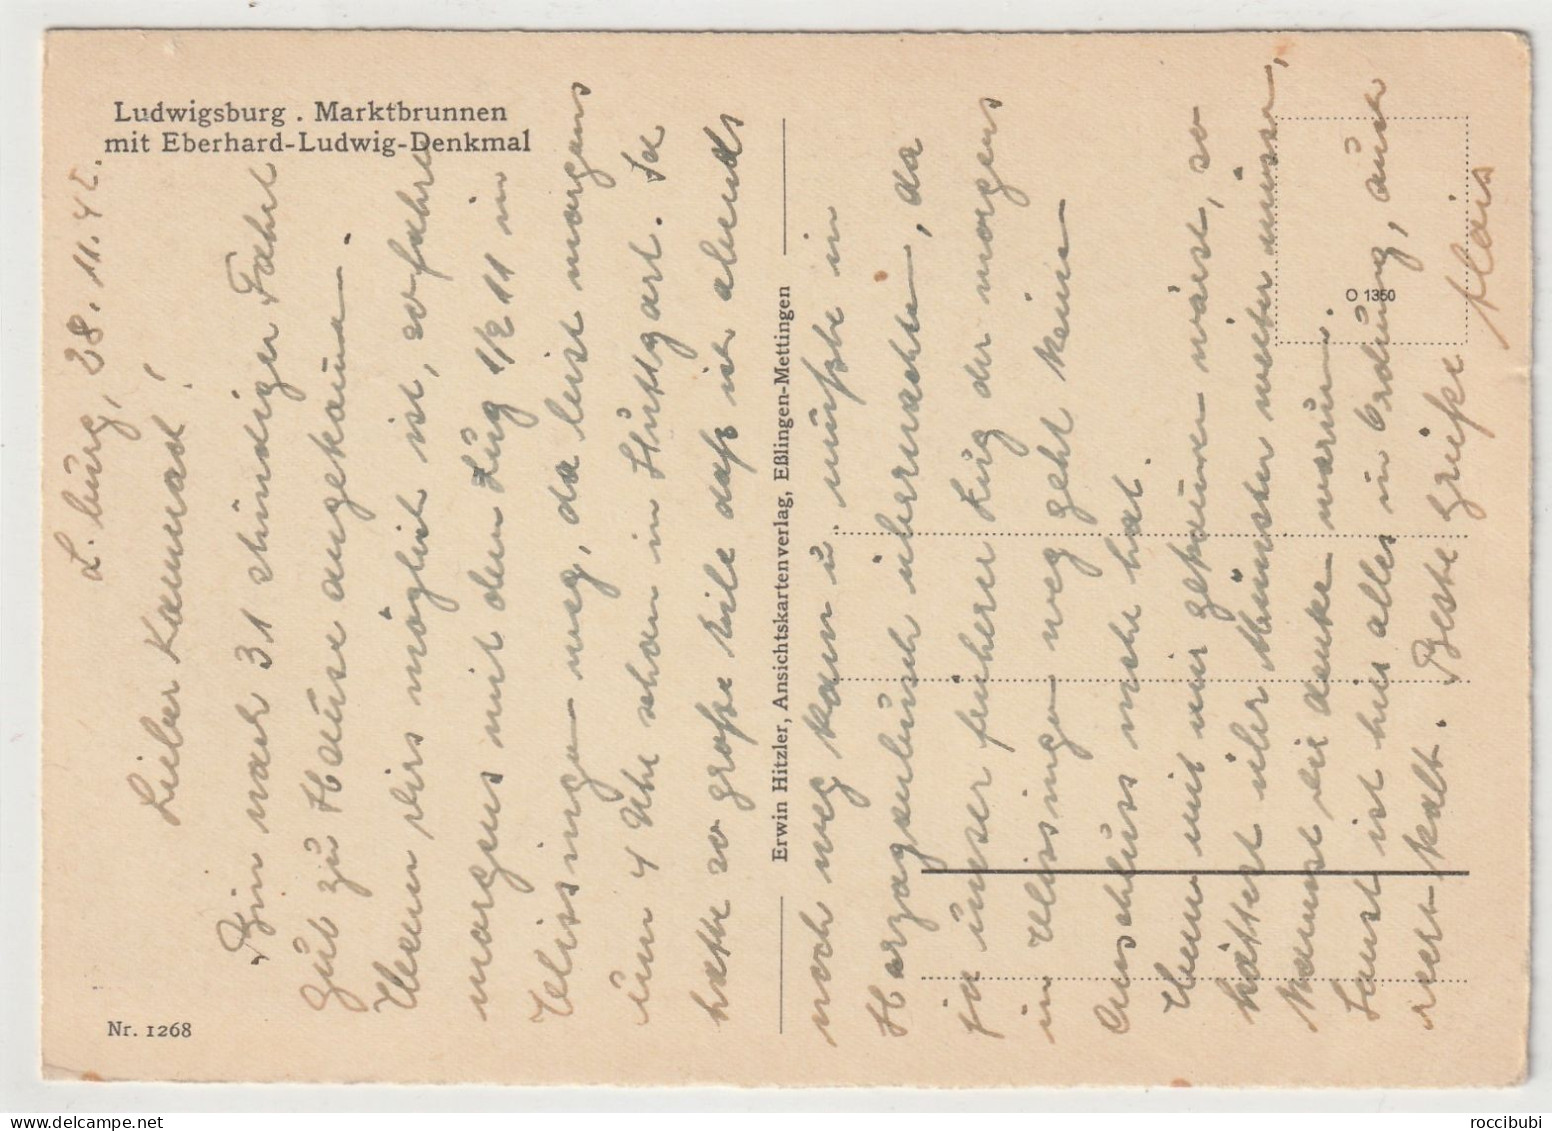 Ludwigsburg . Marktbrunnen
mit Eberhard-Ludwig-Denkmal
L.burg, 28.11.42.
Lieber Kamerad!
Bin nach 31 stündiger Fahrt
gut zu Hause angekommen.
Wenn dirs möglich ist, so fahre
morgens mit dem Zug 1/2 11 in
Vlissingen weg, da bist morgens
um 4 Uhr schon in Stuttgart. Ich
hatte so große Eile daß ich abends
noch weg kam u. mußte in
Herzogenbusch übernachten, da
ja unser früherer Zug der morgens
in Vlissingen weg geht keine
Anschluss mehr hat.
Wenn mit mir gekommen wärst, so
hättest über Münster weiter müssen,
kannst dir denken warum.
Sonst ist hier alles in Ordnung, auch
recht kalt. Beste Grüße
Alois
Erwin Hitzler, Ansichtskartenverlag, Eßlingen-Mettingen
O 1350
Nr. 1268
roccibubi